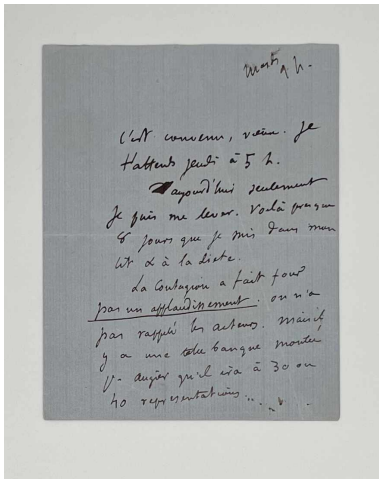 Mardi 9 h.
C'est convenu, vieux. Je
t'attends jeudi à 5 h.
aujourd'hui seulement
je puis me lever. Voilà presque
8 jours que je suis dans mon
lit & à la diète.
La Contagion a fait four
pas un applaudissement. on n'a
pas rappelé les acteurs. mais il
y a une telle banque montée
p. augier qu'il ira à 30 ou
40 représentations...